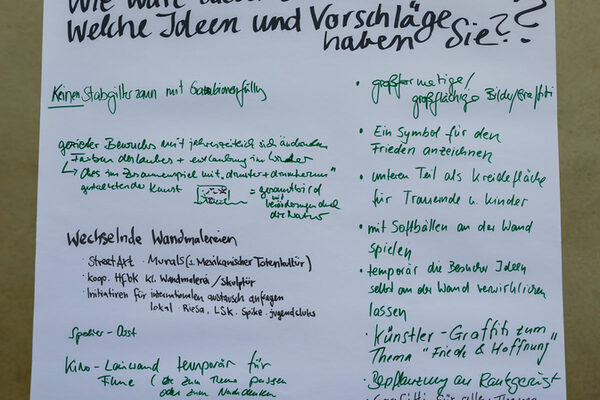 Welche Ideen und Vorschläge
haben Sie??
Keinen Stabgitterzaun mit Gabbionenfüllung
gezielter Bewuchs mit jahreszeitlich sich ändernden
Farben des Laubes + entlaubung im Winter
↳ dies im Zusammenspiel mit "drunter + drumherum"
Kunst = gesamtbild
mit
Veränderungen durch
die Natur
Wechselnde Wandmalereien
Street Art · Murals (z. Mexikanischer Totenkultur)
· koop. HfbK kl. Wandmalerei / Skulptur
· Initiativen für internationalen austausch anfragen
lokal - Riesa, LSK, Spike, jugendclubs
Kino-Leinwand temporär für
Filme (die zum Thema passen
oder zum Nachdenken
• großformatige/
großflächige Bilder/Graffiti
• Ein Symbol für den
Frieden anzeichnen
• unteren Teil als Kreidefläche
für Trauernde u. Kinder
• mit Softbällen an der Wand
spielen
• temporär die Besucher Ideen
selbst an der Wand verwirklichen
lassen
• Künstler-Graffiti zum
Thema "Friede & Hoffnung"
• Bepflanzung an Rankgerüst